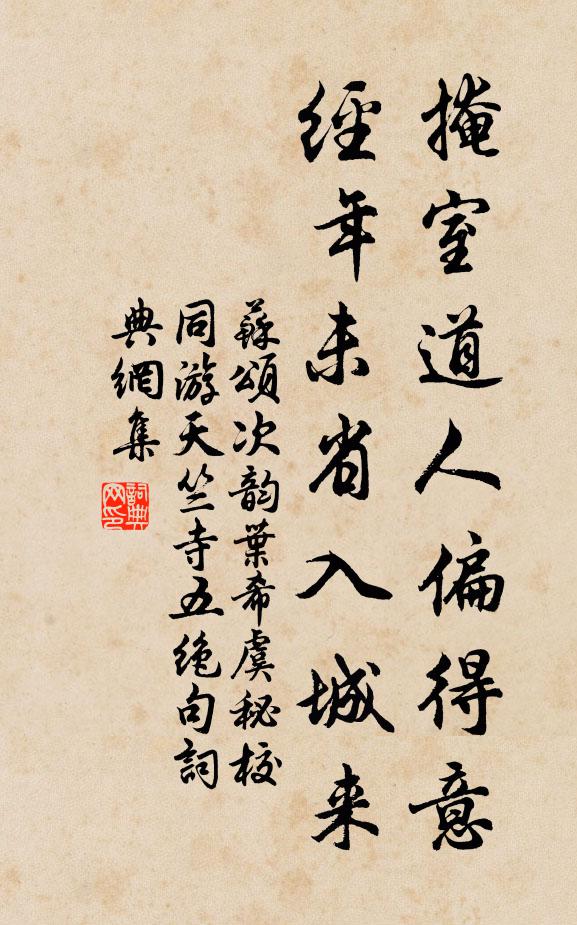 掩室道人偏得意
經年未省入城来
蘇頌次韵葉希虞秘校
同游天竺寺五绝句詞
典網集
詞典网印